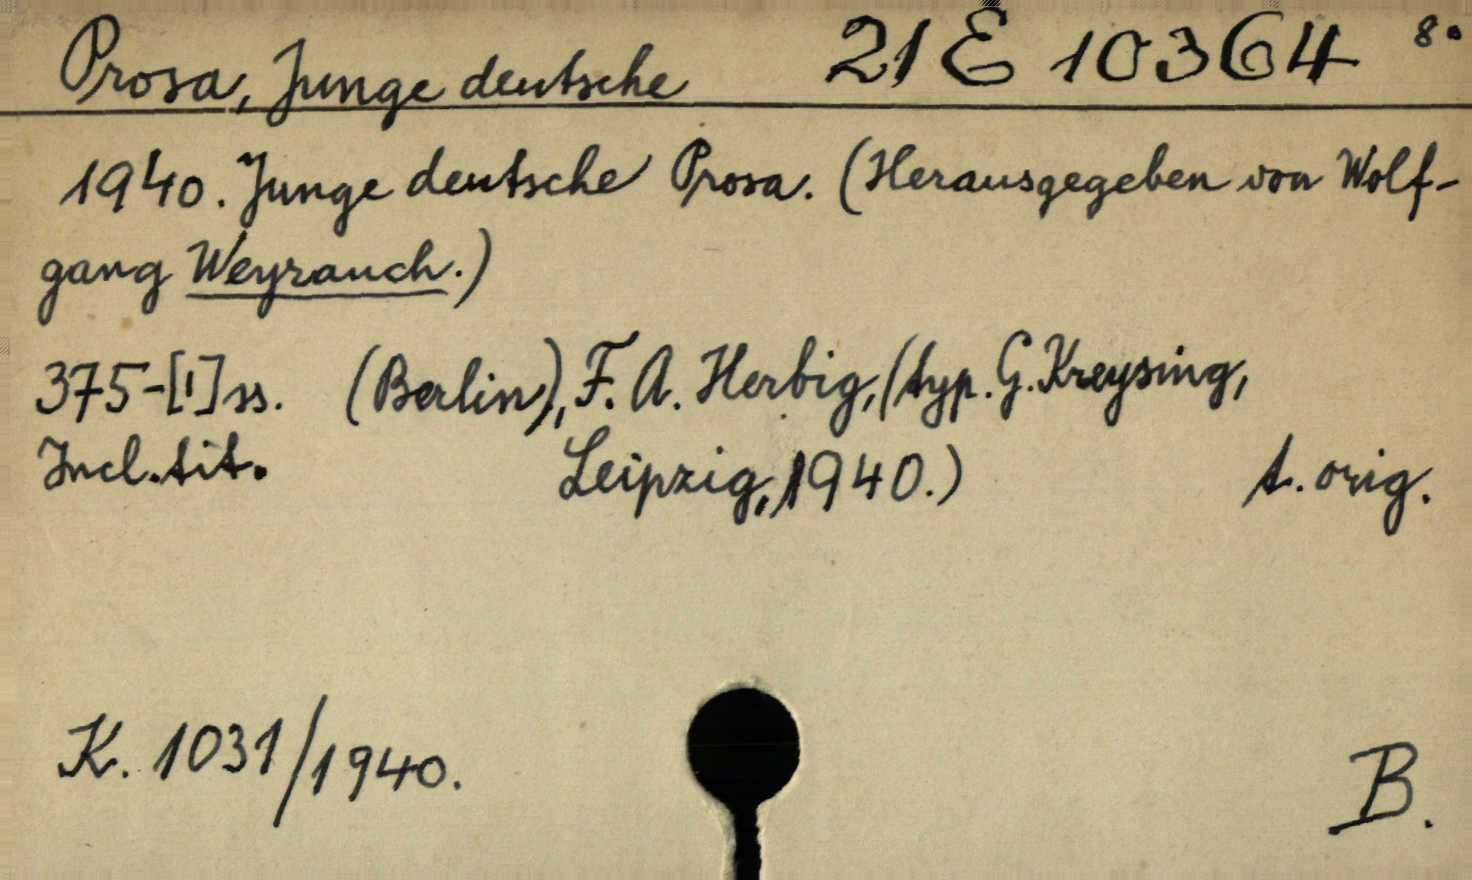 Prosa, Junge deutsche 21 E 10364 8°
1940. Junge deutsche Prosa. (Herausgegeben von Wolf-
gang Weyrauch.)
375-[1] ss. (Berlin), F. A. Herbig, (typ. G. Kreysing,
Incl. tit. Leipzig, 1940.) t. orig.
K. 1031/1940. B.